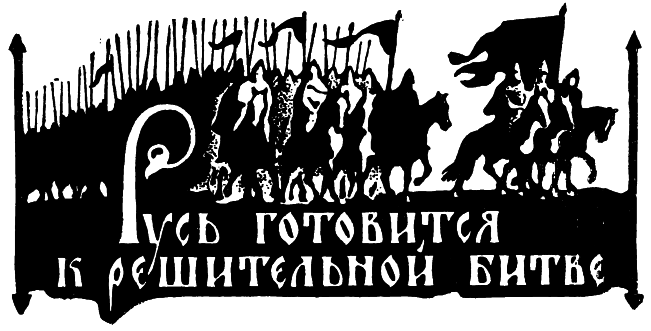 Русь готовится
к решительной битве